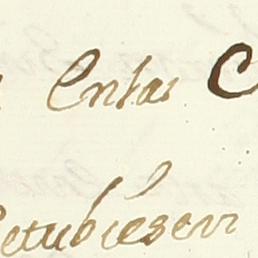 en las C
etubiesen